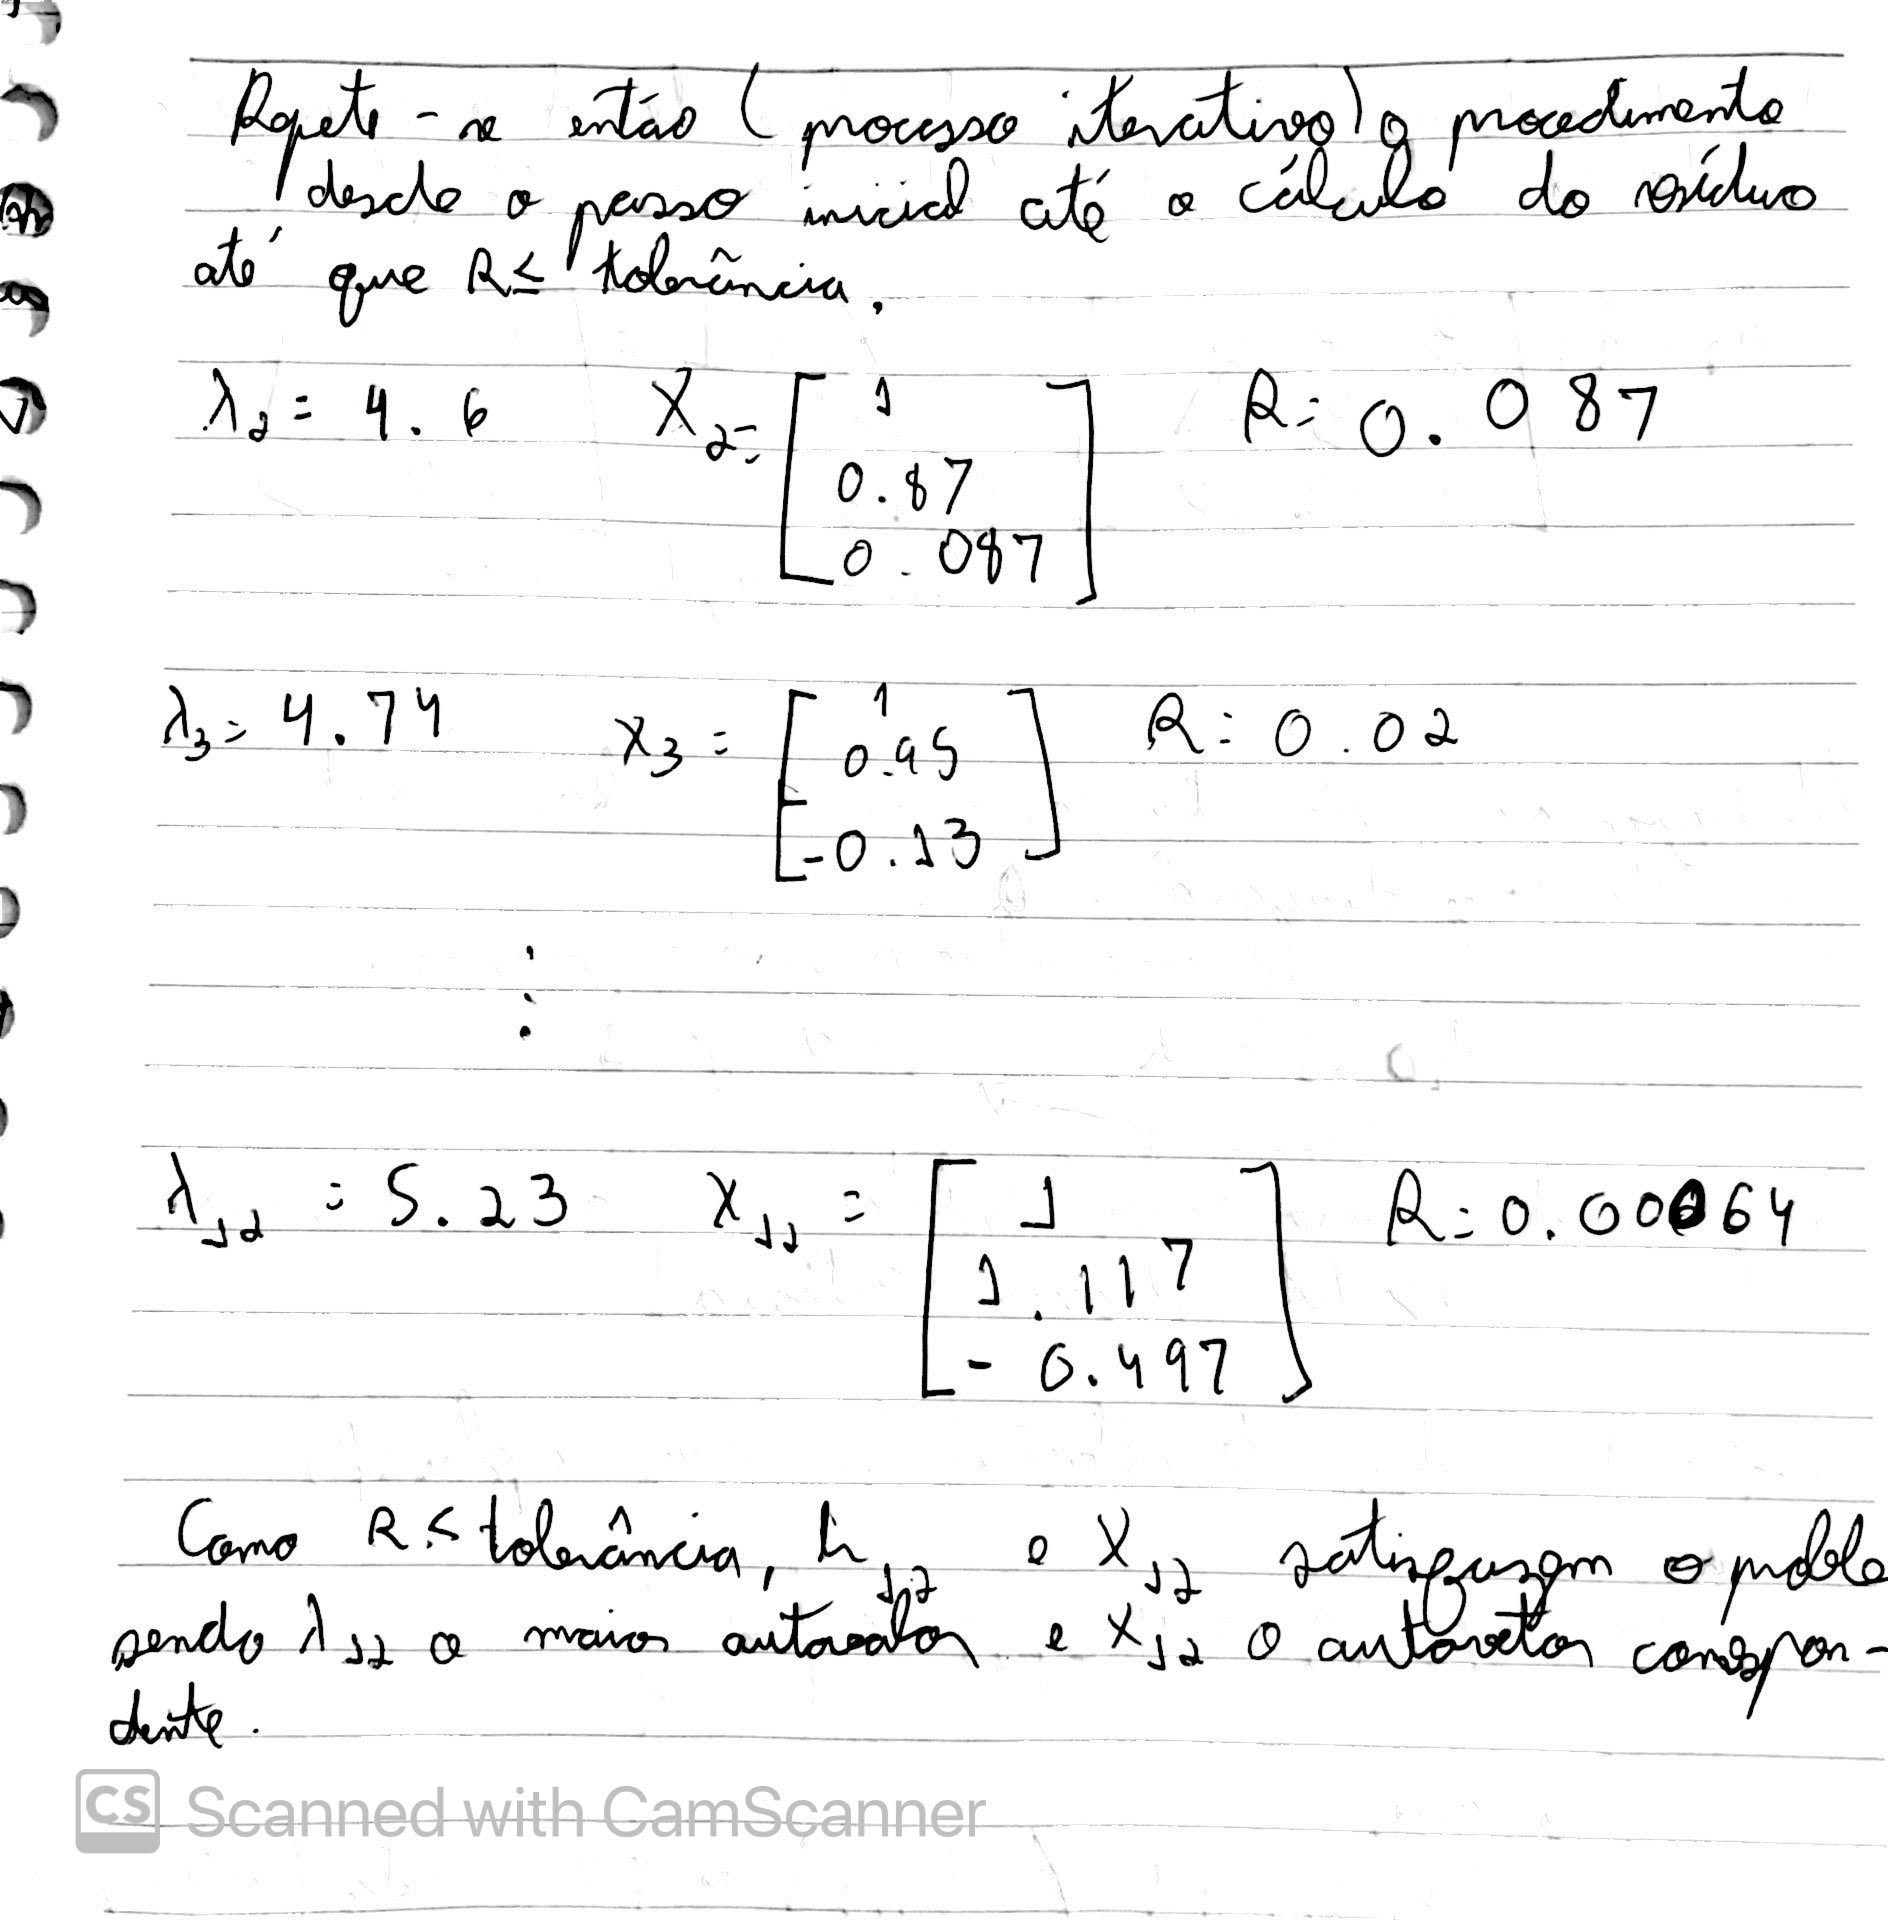 Repete-se então (processo iterativo) o procedimento
desde o passo inicial até o cálculo do resíduo
até que R ≤ tolerância.
λ₂ = 4.6 X₂ = [1 0.87 0.087] R = 0.087
λ₃ = 4.74 X₃ = [1 0.95 -0.13] R = 0.02
⋮
λ₁₂ = 5.23 X₁₁ = [1 1.117 -0.497] R = 0.00064
Como R ≤ tolerância, λ₁₂ e X₁₂ satisfazem o proble
sendo λ₁₂ o maior autovalor e X₁₂ o autovetor correspon-
dente.
CS Scanned with CamScanner